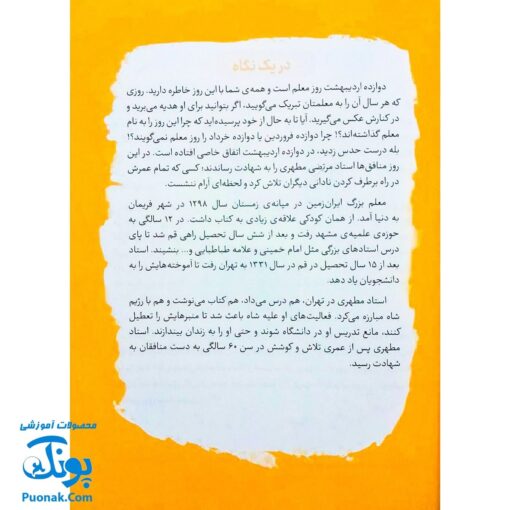 در یک نگاه
دوازده اردیبهشت روز معلم است و همه‌ی شما با این روز خاطره دارید. روزی
که هر سال آن را به معلمتان تبریک می‌گویید، اگر بتوانید برای او هدیه می‌برید و
در کنارش عکس می‌گیرید. آیا تا به حال از خود پرسیده‌اید که چرا این روز را به نام
معلم گذاشته‌اند؟! چرا دوازده فروردین یا دوازده خرداد را روز معلم نمی‌گویند؟!
بله درست حدس زدید، در دوازده اردیبهشت اتفاق خاصی افتاده است. در این
روز منافق‌ها استاد مرتضی مطهری را به شهادت رساندند؛ کسی که تمام عمرش
در راه برطرف کردن نادانی دیگران تلاش کرد و لحظه‌ای آرام ننشست.
معلم بزرگ ایران‌زمین در میانه‌ی زمستان سال ۱۲۹۸ در شهر فریمان
به دنیا آمد. از همان کودکی علاقه‌ی زیادی به کتاب داشت. در ۱۲ سالگی به
حوزه‌ی علمیه‌ی مشهد رفت و بعد از شش سال تحصیل راهی قم شد تا پای
درس استادهای بزرگی مثل امام خمینی و علامه طباطبایی و... بنشیند. استاد
بعد از ۱۵ سال تحصیل در قم در سال ۱۳۳۱ به تهران رفت تا آموخته‌هایش را به
دانشجویان یاد دهد.
استاد مطهری در تهران، هم درس می‌داد، هم کتاب می‌نوشت و هم با رژیم
شاه مبارزه می‌کرد. فعالیت‌های او علیه شاه باعث شد تا منبرهایش را تعطیل
کنند، مانع تدریس او در دانشگاه شوند و حتی او را به زندان بیندازند. استاد
مطهری پس از عمری تلاش و کوشش در سن ۶۰ سالگی به دست منافقان به
شهادت رسید.
محصولات آموزشی
پونک
Puonak.Com